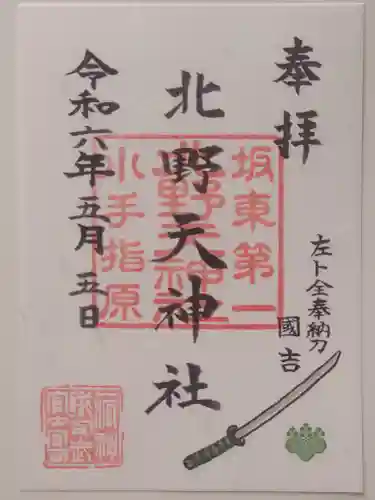 奉拝
左卜全奉納刀
國吉
北野天神社
坂東第一
北野天神社
小手指原
令和六年五月五日